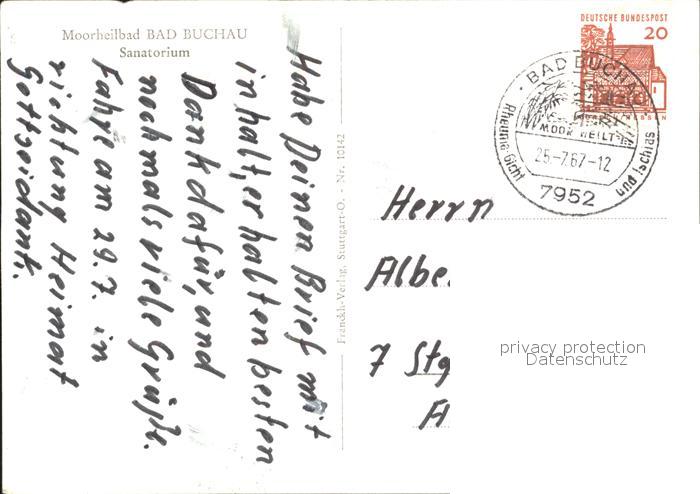 Moorheilbad BAD BUCHAU
Sanatorium
Habe Deinen Brief mit
inhalt, erhalten besten
Dank dafür, und
nochmals viele Grüße.
Fahre am 29.7. in
richtung Heimat
Gottseidank.
Franckh-Verlag, Stuttgart-O. - Nr. 10142
DEUTSCHE BUNDESPOST
20
BAD BUCHAU
MOOR HEILT
Rheuma Gicht
und Ischias
25.-7.67-12
7952
Herrn
Albe
7 Stg
privacy protection
Datenschutz